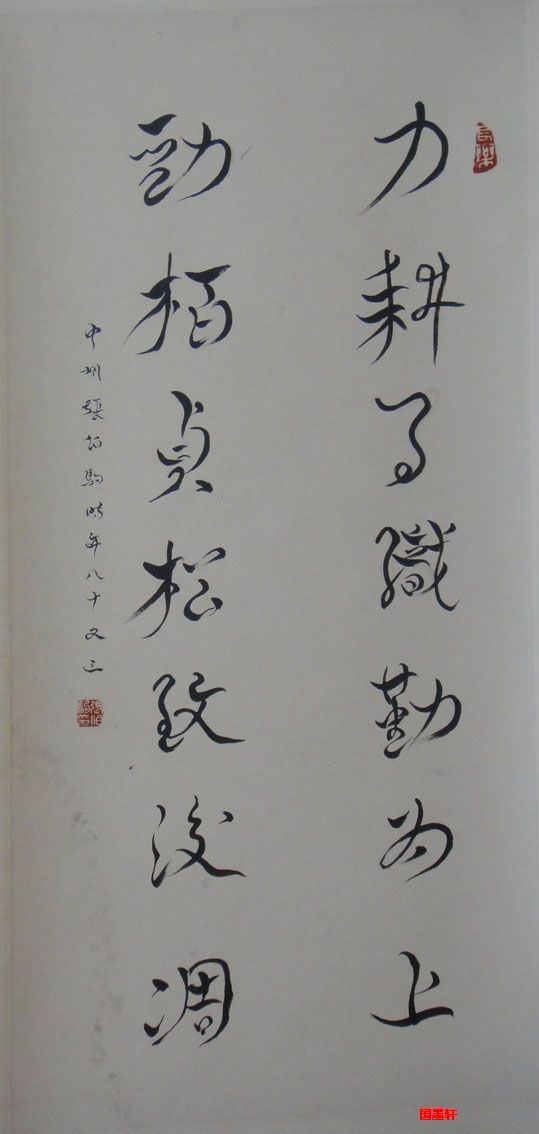 力耕織勤为上
勁柏貞松致後凋
中州張伯駒時年八十又三
国墨轩